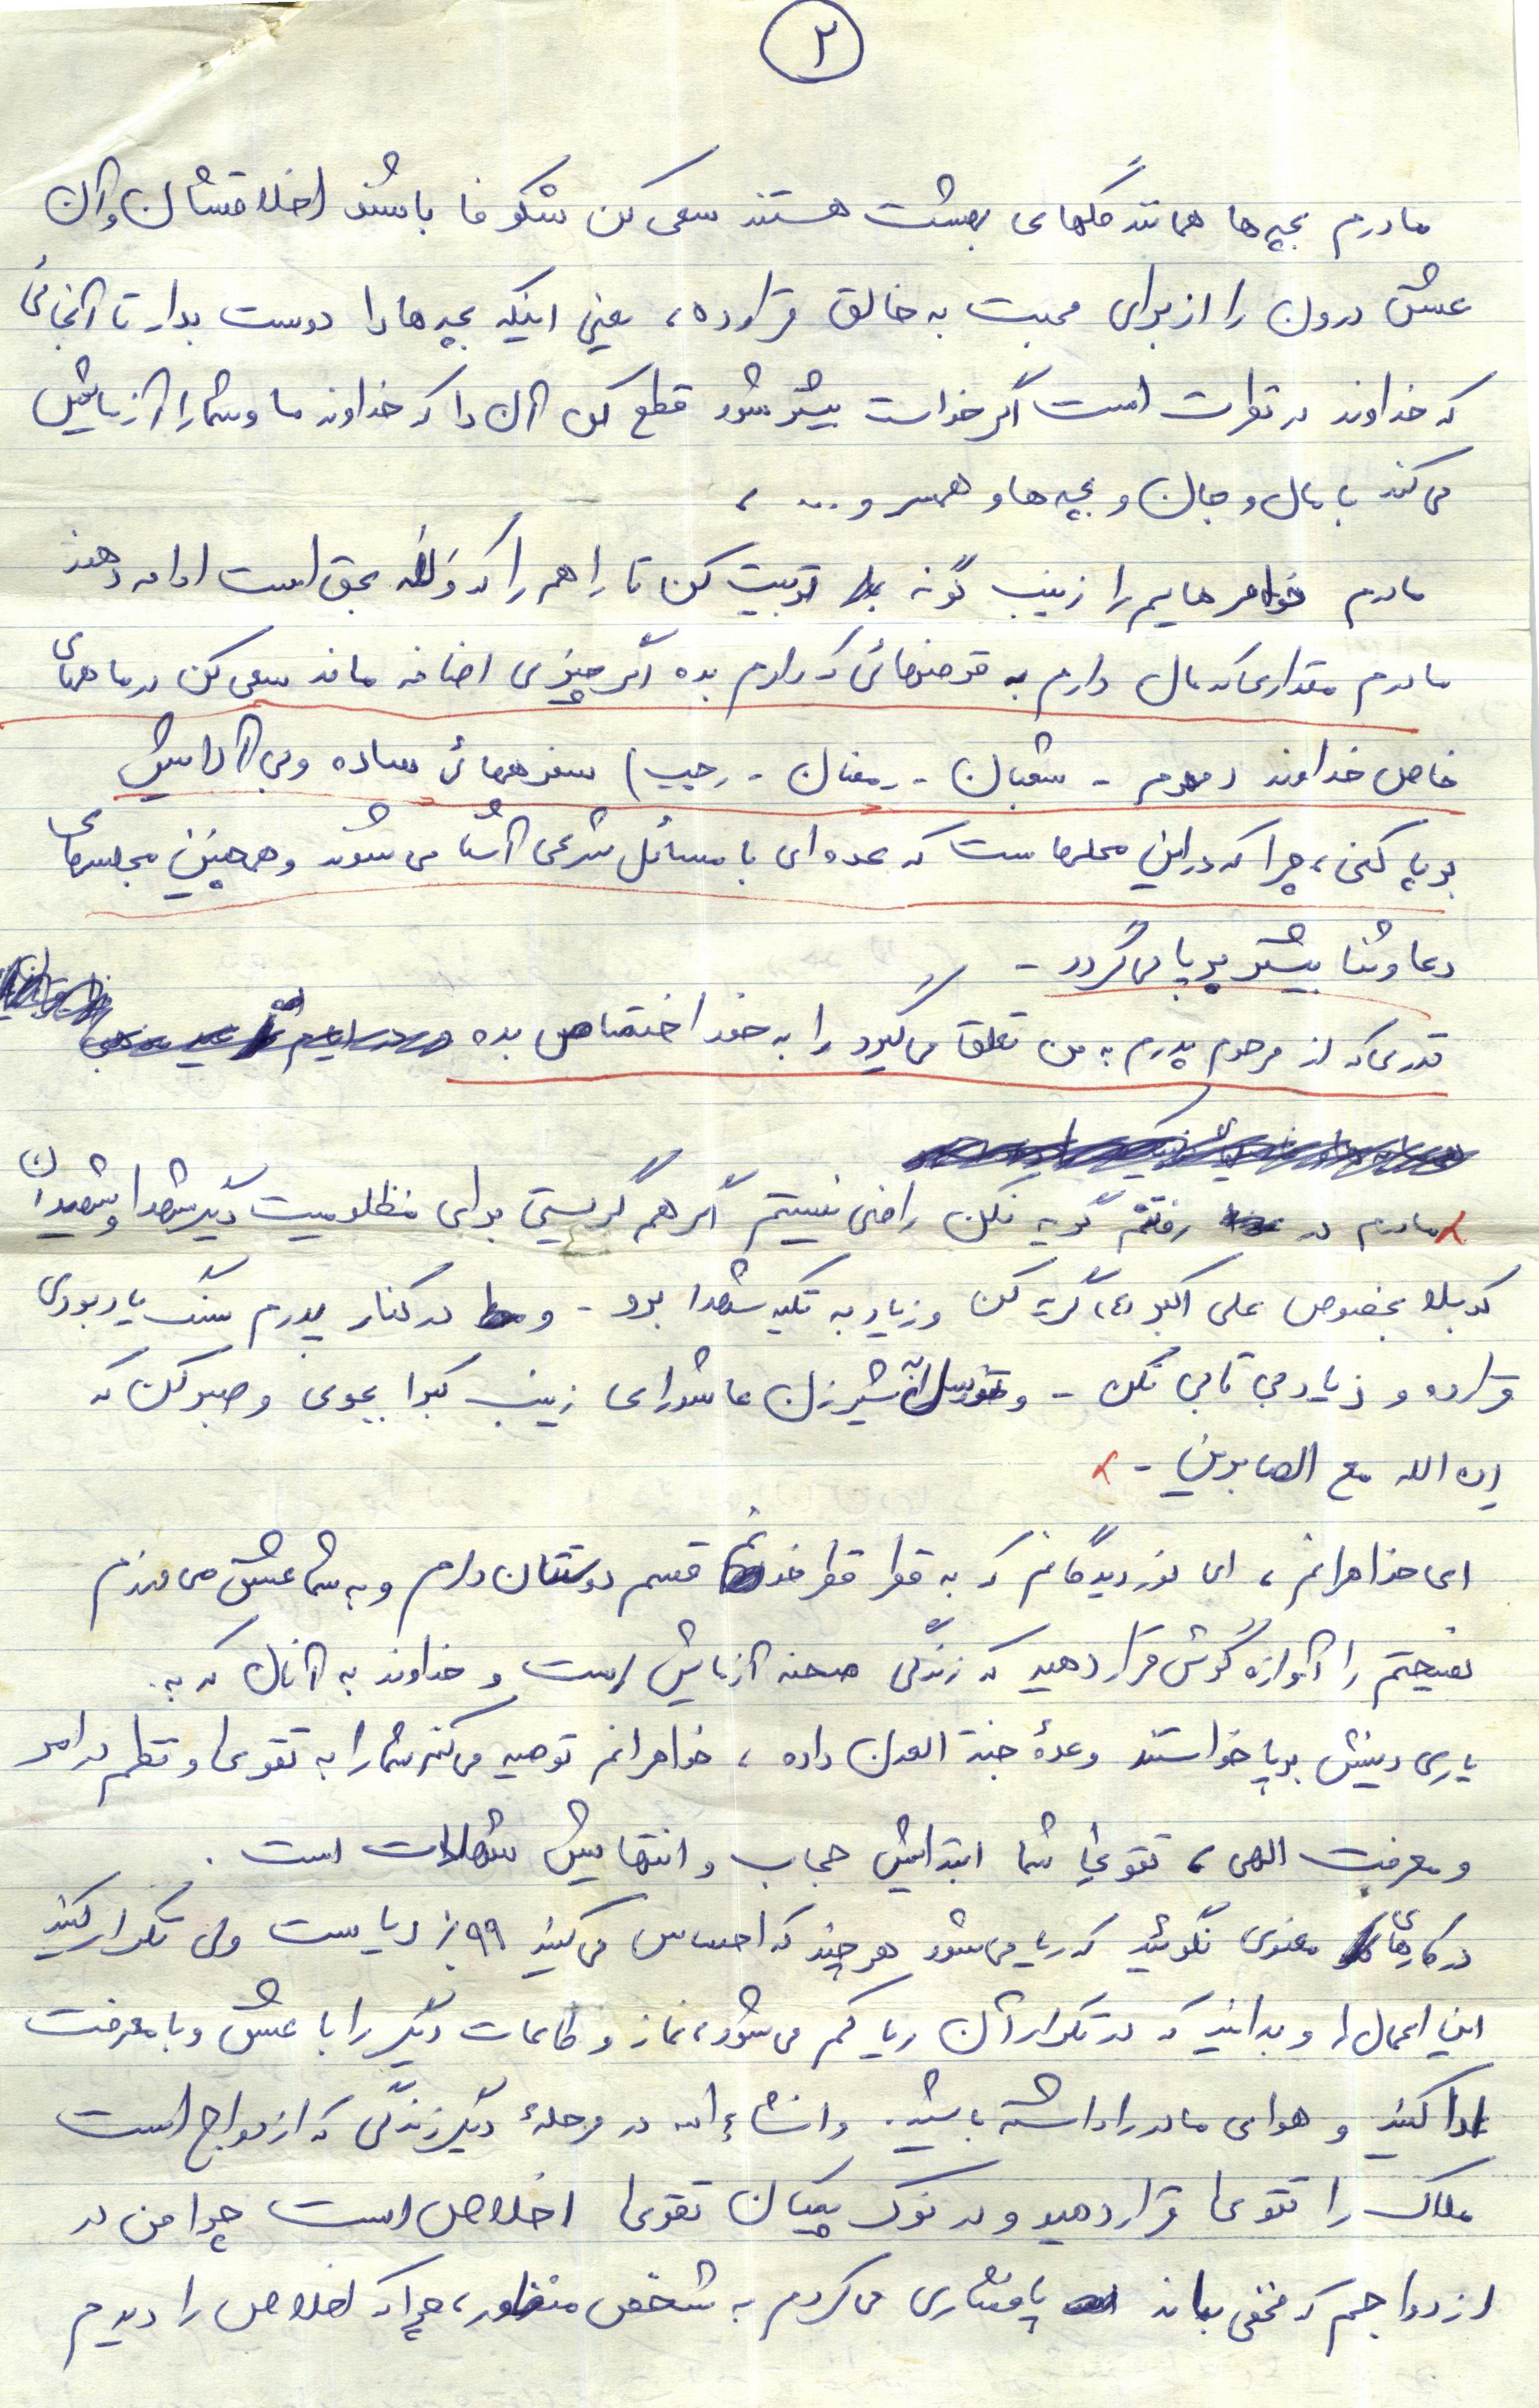 ۲
مادرم بچه‌ها همانند گلهای بهشت هستند سعی کن شکوفا باشند اخلاقشان و آن
عشق درون را از برای محبت به خالق قرار ده، یعنی اینکه بچه‌ها را دوست بدار تا آنجائی
که خداوند در نظرت است اگر خواست بیشتر شود قطع کن آن را که خداوند ما و شما را آزمایش
می کند با مال و جان و بچه‌ها و همسر و ... ،
مادرم خواهرهایم را زینب گونه تربیت کن تا راهم را که والله بحق است ادامه دهند
مادرم مقداری که مال دارم به قرضهائی که دارم بده اگر چیزی اضافه ماند سعی کن در ماههای
خاص خداوند (محرم - شعبان - رمضان - رجب) سفرههائی ساده و بی آلایش
بر پا کنی، چرا که در این محلهاست که عده‌ای با مسائل شرعی آشنا می شوند و همچنین مجلسهای
دعا و ثنا بیشتر بر پا می گردد -
قدری که از مرحوم پدرم به من تعلق می گیرد را به خود اختصاص بده
مادرم در رفتنم گریه نکن راضی نیستم اگر هم گریستی برای مظلومیت دیگر شهدا و شهیدان
کربلا بخصوص علی اکبر (ع) گریه کن و زیاد به تکیه شهدا برو - و در کنار پدرم سنگ یادبودی
قرار ده و زیاد بی تابی نکن - و توسل از آن شیرزن عاشورای زینب کبرا بجوی و صبر کن که
ان الله مع الصابرین -
ای خواهرانم، ای نور دیدگانم که به قطره قطره خونم قسم دوستتان دارم و به شما عشق می ورزم
نصیحتم را آویزه گوش قرار دهید که زندگی صحنه آزمایش است و خداوند به آنان که به
یاری دینش بر پا خواستند وعدهٔ جنة العدن داده، خواهرانم توصیه می کنم شما را به تقوی و نظم در امر
و معرفت الهی، تقوی شما ابتدایش حجاب و انتهایش شهادت است.
در کارهای معنوی نگوئید که ریا می شود هر چند که احساس می کنید ۹۹٪ ریا است ولی تکرار کنید
این اعمال را و بدانید که در تکرار آن ریا کم می شود، نماز و طاعات دیگر را با عشق و با معرفت
ادا کنید و هوای مادر را داشته باشید. و انشاءالله در مرحلهٔ دیگر زندگی که ازدواج است
ملاک را تقوی قرار دهید و در نوک پیکان تقوی اخلاص است چرا من در
ازدواجم که مخفی بماند پافشاری می کردم به شخص منظور، چرا که اخلاص را دیدم